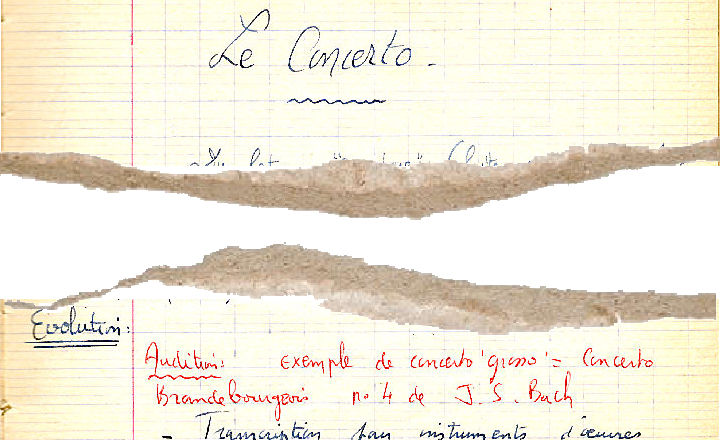 Le Concerto.
Evolution:
Audition: exemple de concerto 'grosso' = Concerto
Brandebourgeois no 4 de J. S. Bach
- Transcription pour instruments d'œuvres